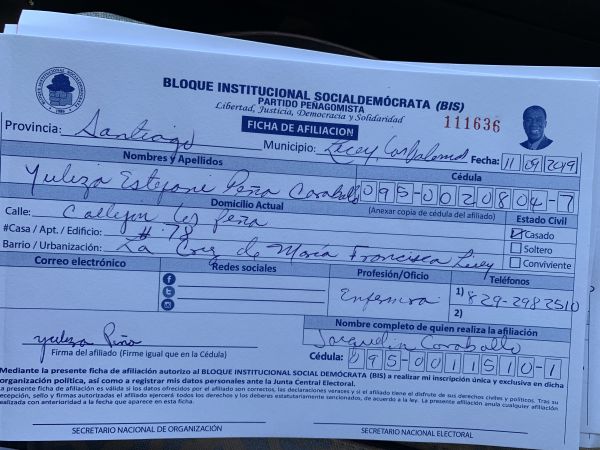 BLOQUE INSTITUCIONAL SOCIALDEMÓCRATA (BIS)
PARTIDO PEÑAGOMISTA
Libertad, Justicia, Democracia y Solidaridad
FICHA DE AFILIACION
111636
Provincia: Santiago Municipio: Licey, Las Palomas Fecha: 11 09 2019
Nombres y Apellidos Cédula
Yuleiza Estefani Peña Caraballo 095-0020804-7
Domicilio Actual (Anexar copia de cédula del afiliado) Estado Civil
Calle: Callejon los Peña Casado
#Casa / Apt. / Edificio: # 78 Soltero
Barrio / Urbanización: La Cruz de María Francisca Licey Conviviente
Correo electrónico Redes sociales Profesión/Oficio Teléfonos
Enfermera 1) 829-298 2510
2)
Nombre completo de quien realiza la afiliación
Yuleiza Peña Jacquelin Caraballo
Firma del afiliado (Firme igual que en la Cédula) Cédula: 095-0011510-1
Mediante la presente ficha de afiliación autorizo al BLOQUE INSTITUCIONAL SOCIAL DEMÓCRATA (BIS) a realizar mi inscripción única y exclusiva en dicha
organización política, así como a registrar mis datos personales ante la Junta Central Electoral.
La presente ficha de afiliación es válida si los datos ofrecidos por el afiliado son correctos, las declaraciones veraces y si el afiliado tiene el disfrute de sus derechos civiles y políticos. Tras su
recepción, sello y firmas autorizadas el afiliado ejercerá todos los derechos y los deberes estatutariamente sancionados, de acuerdo a la ley. La presente afiliación anula cualquier afiliación
realizada con anterioridad a la fecha que aparece en esta ficha.
SECRETARIO NACIONAL DE ORGANIZACIÓN SECRETARIO NACIONAL ELECTORAL